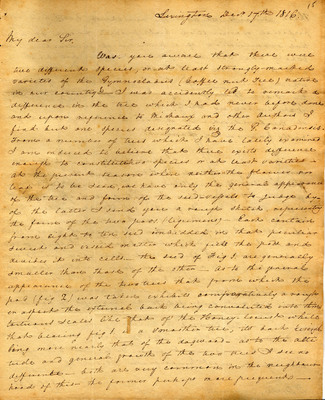 Livingston Dec 17th 1816
My dear Sir,
Was you aware that there were
two different species, or at least strongly marked
varieties of the Gymnocladus (Coffee nut Tree) native
in our country? I was accidently led to remark a
difference in the tree which I had never before done
and upon reference to Michaux and other authors I
find but one species designated by the G. Canadensis
From a number of trees which I have lately examined
I am induced to believe that there exists difference
enough to constitute a species or at least varieties
At the present season when neither flower nor
leaf is to be seen, we have only the general appearance
of the tree and form of the seedvessels to judge by.
of the latter I send you a rough sketch apparently
the form of the two pods (legumens). Each contain
from eight to ten seed imbedded in that peculiar
sweet and viscid matter which fills the pod and
divides it into cells. The seed of Fig 1 are generally
smaller than those of the other. As to the general
appearance of the two trees that from which the
pod (fig 2) was taken exhibits comparatively a rough
aspect the external bark being connected into thin
tortuous scales like that of the Honey-locust while
that bearing fig 1. is a smoother tree, its bark
being more nearly that of the dogwood. as to the
and general growth of the two trees I see no
difference. both are very common in the neighbor
hood of this the former perhaps more frequent